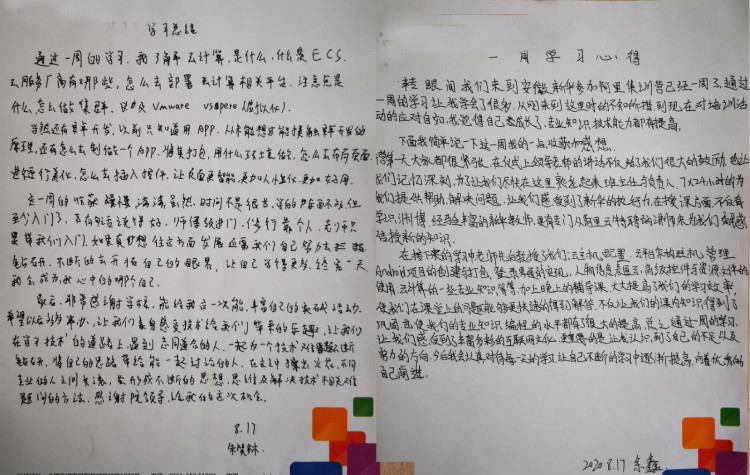 学习总结
通过一周的学习,我了解云计算是什么,什么是ECS.
云服务厂商有哪些,怎么去部署云计算相关平台,注意点是
什么,怎么做集群,以及Vmware vsapere(虚拟化).
当然还有安卓开发,以前只知道用APP.从未能想过能接触安卓开发的
原理,还有怎么去制做一个APP.
怎么去插入控件,让页面更智能,更加人性化,更加好用.
这一周的收获满满,虽然,时间不是很长,
个入门了.
是带我们入门,如果真要想往这方面发展还需我们自己努力去
不断的去开拓自己的眼界,让自己变得更好,终有一天
我会成为我心中的哪个自己.
最后,非常感谢学校,能给我这一次
希望以后多举办,让我们来自感受技术给我们带来的乐趣,让我们
在学习技术的道路上,遇到志同道合的人,一起为一个技术
将自己的思路带给能一起讨论的人,在交谈中擦出火花,不同
专业的人之间交流,
题的方法.感谢院领导,给我们的这次机会.
8.17
一周学习心得
转眼间我们来到安徽新华参加阿里集训营已经一周了,通过
一周的学习让我学会了很多,从刚来到这里时的不知所措到现在对培训活
动的应对自如,我觉得自己在成长了,专业知识技术能力都有提高.
下面我简单记一下这一周我的一点收获和感想.
第一天大家都很紧张,在仪式上领导老师的讲话不仅给了我们很大的鼓励,也让
我们记忆深刻,为了让我们尽快在这里熟悉起来班主任与负责人,7x24小时的为
我们提供帮助,解决问题,让我们感受到了新华的执行力,在授课方面不仅有
学识渊博,经验丰富的新华教师,更有专门从阿里云特聘的讲师来为我们
传授新的知识.
在接下来的学习中老师先后教授了我们:云主机配置,云平台虚拟机管理
Android项目的创建与打包,登录界面的实现,人脑信息表,高级控件与资源文件的
使用,云计算的一些专业知识等等,加上晚上的辅导课,大大提高了我们的学习效率,
使我们在课堂上的问题能够更快速的得到解答,不仅让我们的课内知识得到了
巩固,也使我们的专业知识编程的水平都有了很大的提高.总之,通过一周的学习,
让我们感受到了丰富多彩的互联网文化,更重要的是让我认识到了自己的不足以及
努力的方向,今后我会认真对待每一天的学习,让自己不断的学习中逐渐提高,向着优秀的
自己前进.
2020.8.17 余鑫